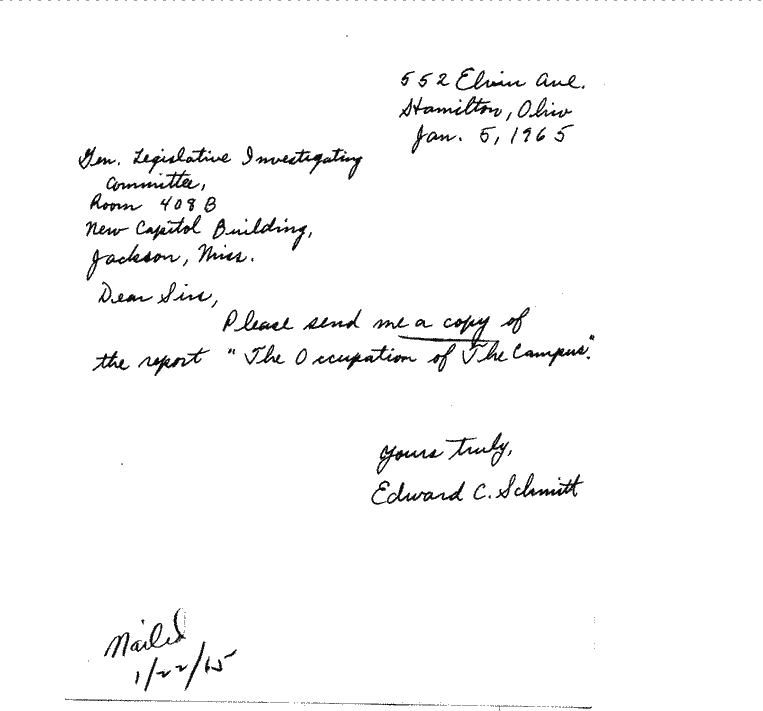 552 Elvin Ave.
Hamilton, Ohio
Jan. 5, 1965
Gen. Legislative Investigating
Committee,
Room 408B
New Capitol Building,
Jackson, Miss.
Dear Sirs,
Please send me a copy of
the report "The Occupation of The Campus".
Yours truly,
Edward C. Schmitt
Mailed
1/22/65